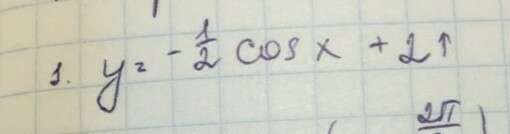 1. y = - 1/2 cos x + 2↑
2π